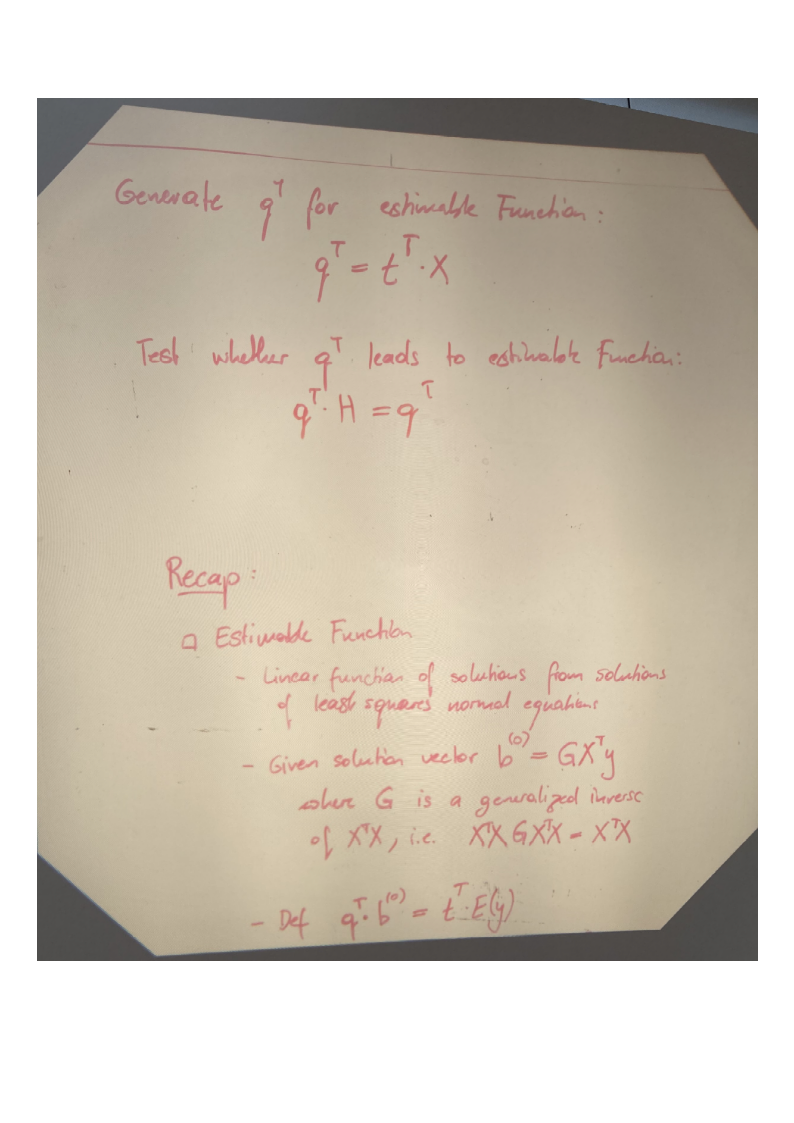 Generate qᵀ for estimable Function:
qᵀ = tᵀ · X
Test whether qᵀ leads to estimable Function:
qᵀ · H = qᵀ
Recap:
□ Estimable Function
- Linear function of solutions from solutions
of least squares normal equations
- Given solution vector b⁽⁰⁾ = GXᵀy
where G is a generalized inverse
of XᵀX, i.e. XᵀXGXᵀX = XᵀX
- Def qᵀ · b⁽⁰⁾ = tᵀ · E(y)